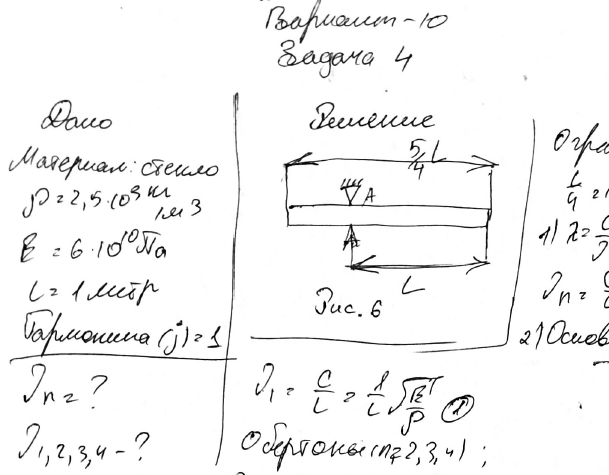 Вариант-10
Задача 4
Дано
Материал: стекло
ρ=2,5·10³ кг/м3
E=6·10¹⁰Па
L=1 метр
Гармоника (j)=1
νn=?
ν1,2,3,4-?
Решение
5/4 L
A
A
L
Рис. 6
ν1 = C/L = 1/L √E/ρ (1)
Обертоны (n=2,3,4);
1) λ=
νn =
2)